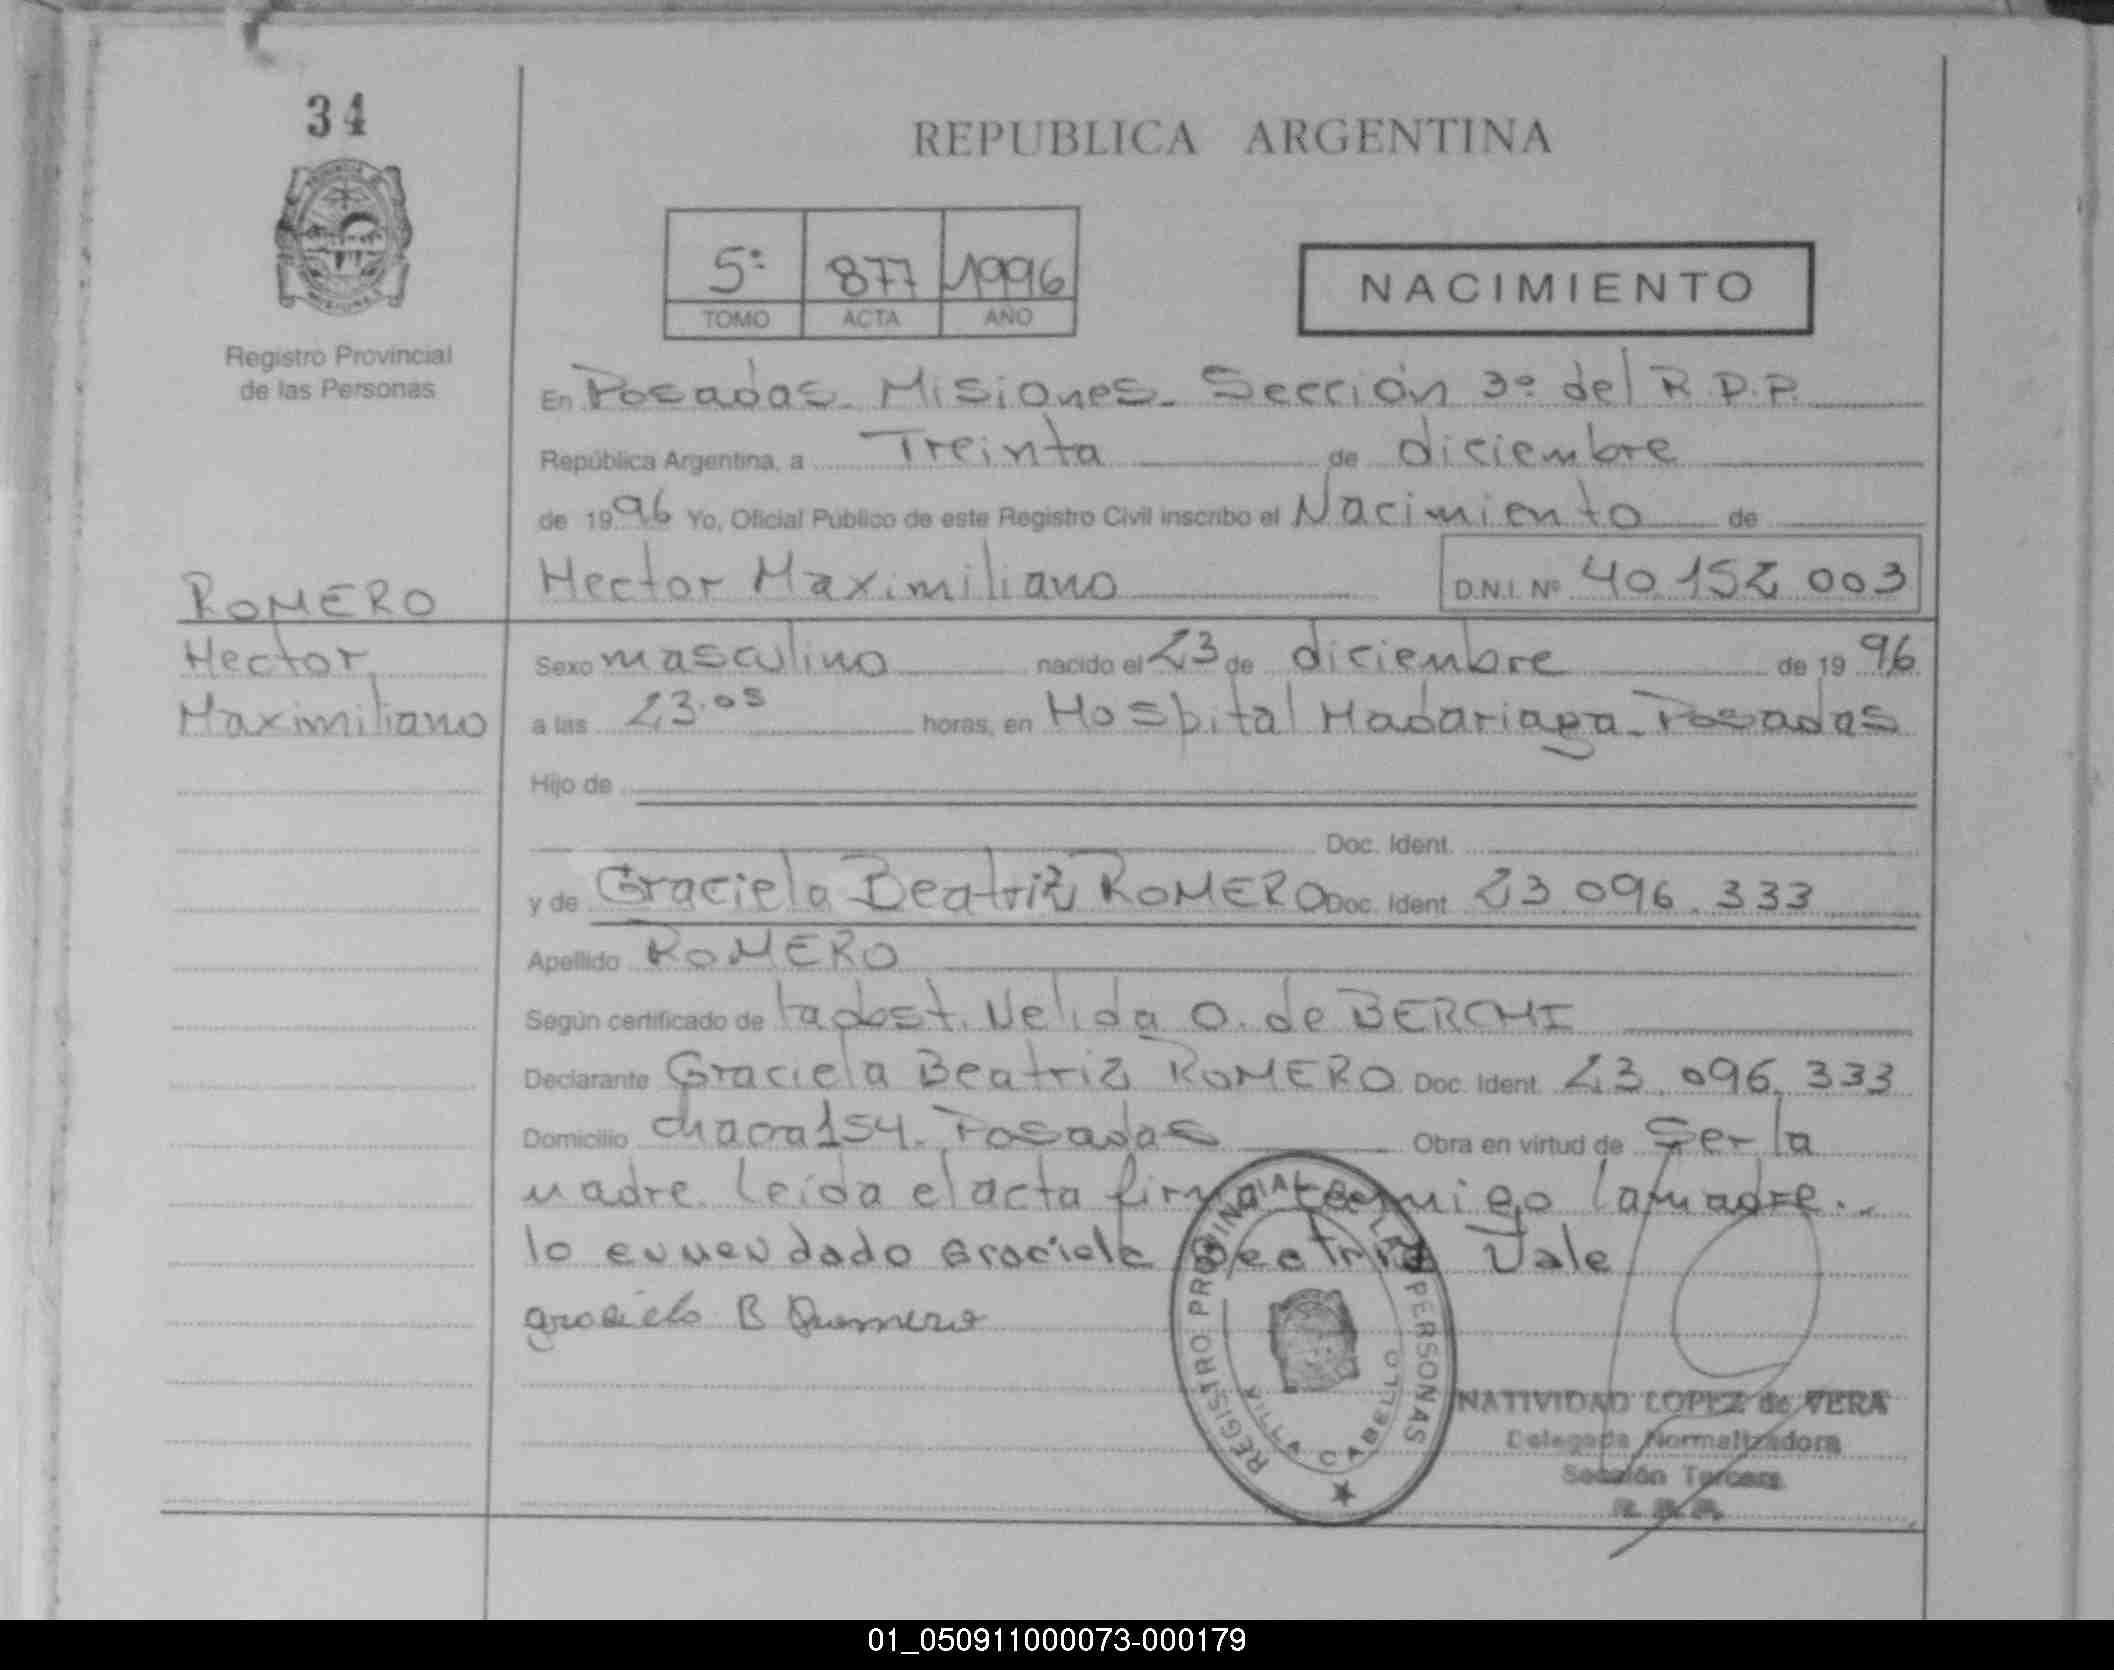 34
REPUBLICA ARGENTINA
5º 877 1996
TOMO ACTA AÑO
NACIMIENTO
Registro Provincial
de las Personas
En Posadas. Misiones. Sección 3º del R.P.P.
República Argentina, a Treinta de diciembre
de 1996 Yo, Oficial Público de este Registro Civil inscribo el Nacimiento de
Hector Maximiliano D.N.I. Nº 40.152.003
ROMERO
Hector
Maximiliano
Sexo masculino nacido el 23 de diciembre de 1996
a las 23.05 horas, en Hospital Madariaga. Posadas
Hijo de
Doc. Ident.
y de Graciela Beatriz ROMERO Doc. Ident. 23.096.333
Apellido ROMERO
Según certificado de Nelida O. de BERCHI
Declarante Graciela Beatriz ROMERO Doc. Ident. 23.096.333
Domicilio chacra 154. Posadas Obra en virtud de Ser la
madre. Leída el acta firma conmigo la madre..
lo enmendado Graciela Beatriz Vale
graciela B Romero
REGISTRO PROVINCIAL DE LAS PERSONAS
VILLA CABELLO
NATIVIDAD LOPEZ de VERA
Delegada Normalizadora
Sección Tercera
R.P.P.
01_050911000073-000179